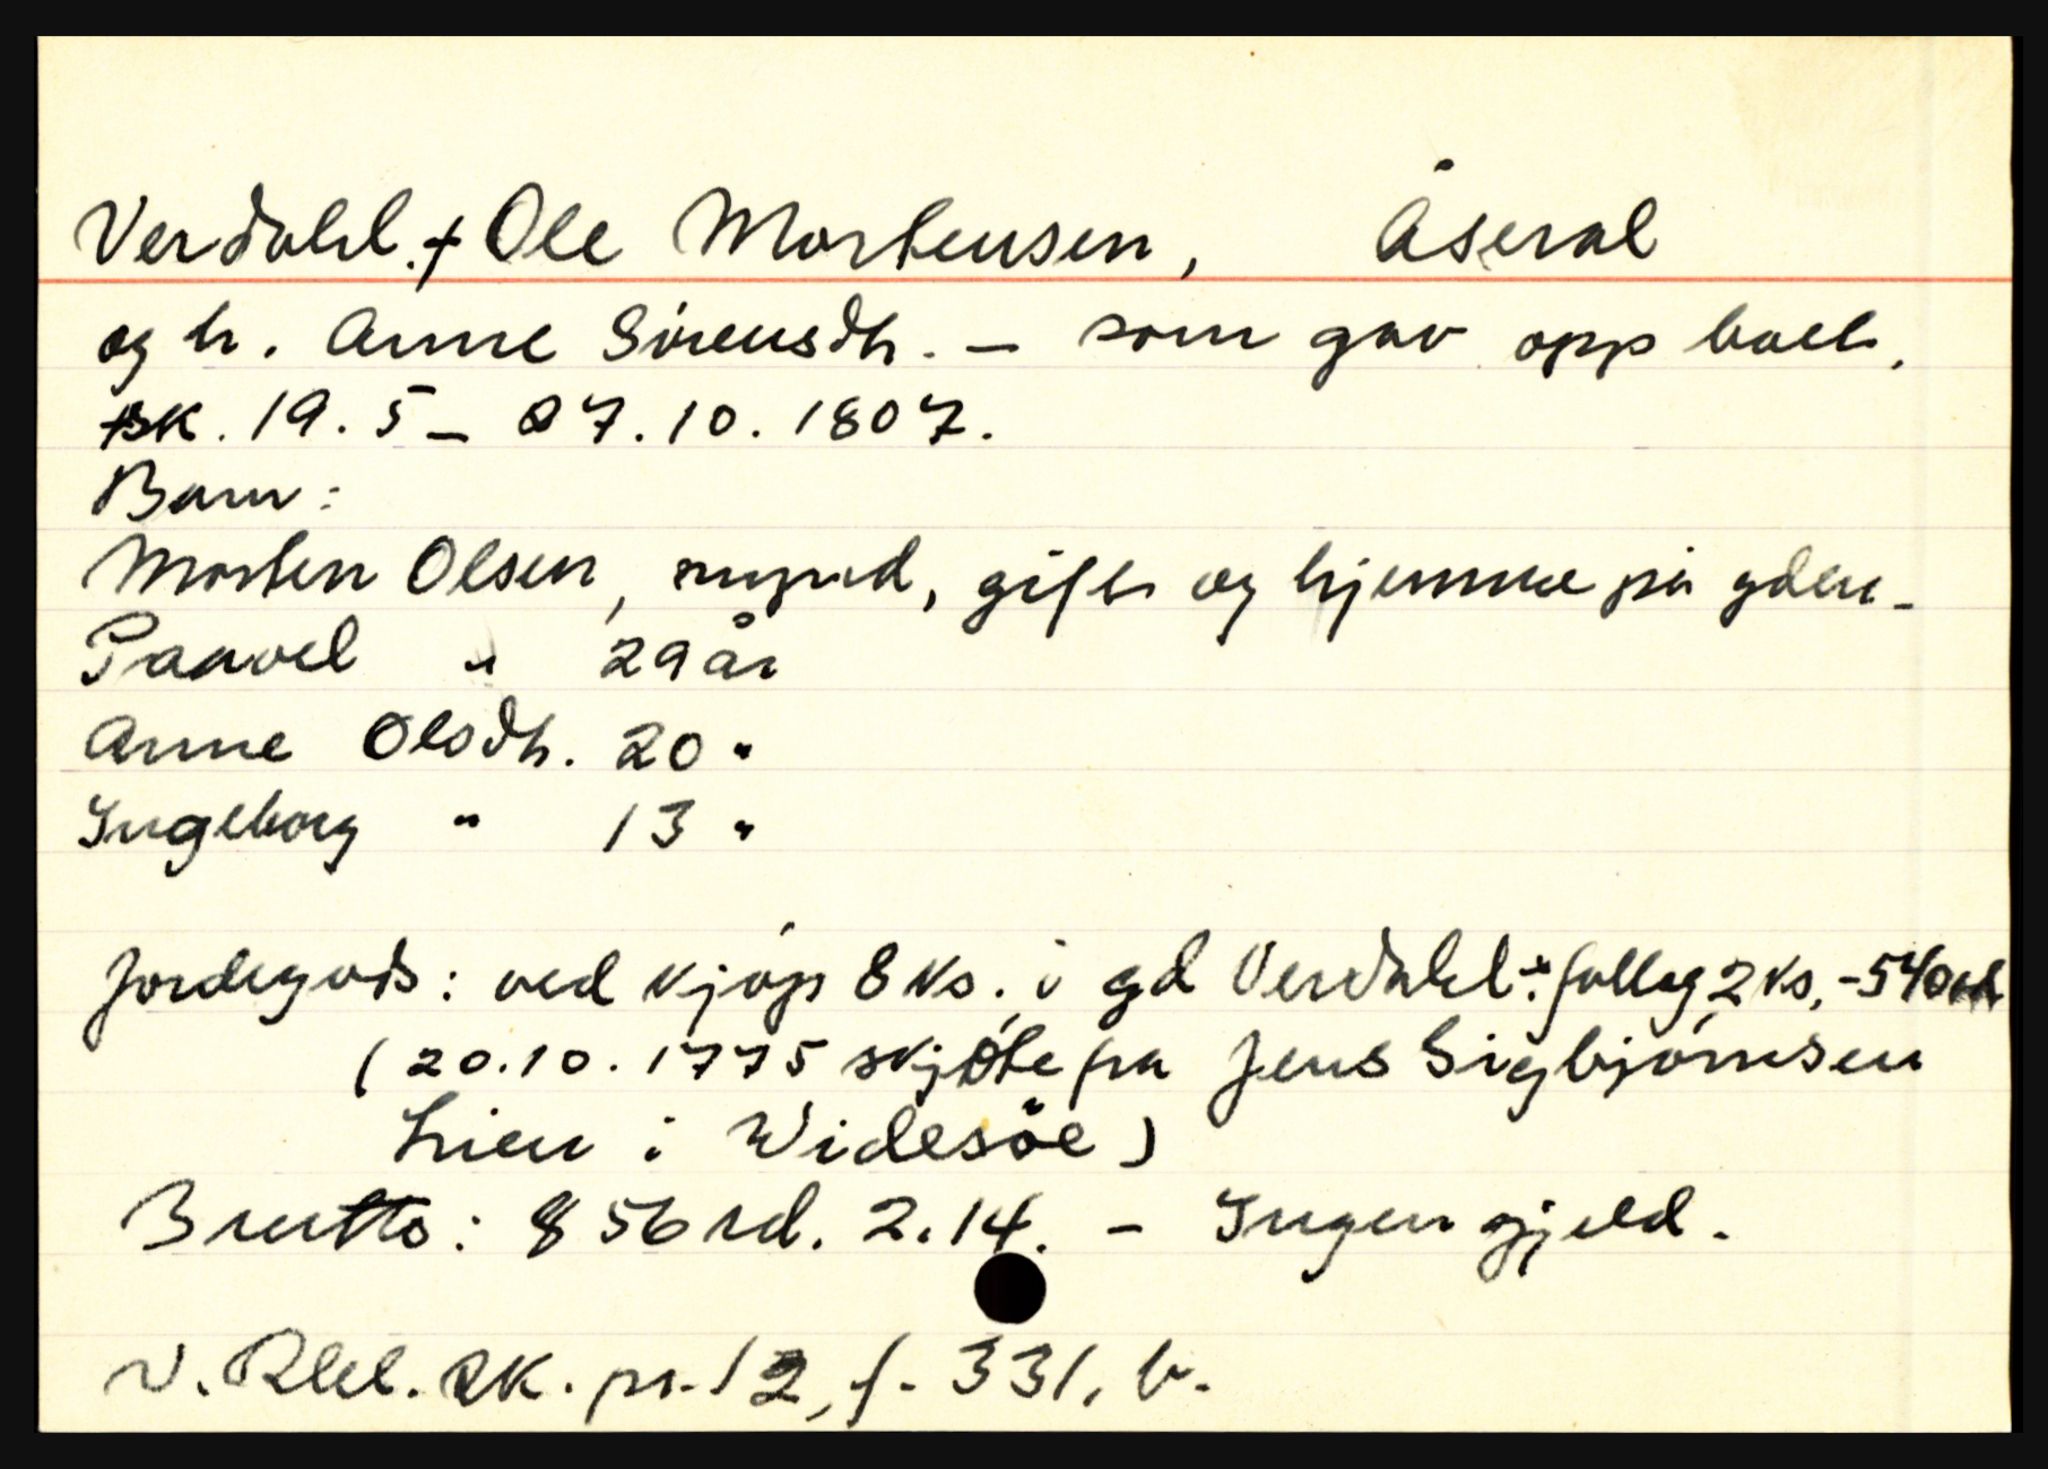 Verdahl. + Ole Mortensen, Åseral
og h. Anne Sörensdtr. - som gav opp boet.
sk. 19.5 - 27.10.1807.
Barn:
Morten Olsen, mynd, gift og hjemme på gden.
Paavel " 29 år
Anne Olsdtr. 20 "
Ingeborg " 13 "
Jordegods: ved kjöp 8 ks. i gd Verdahl + follag 2 ks. - 540 rd.
(20.10.1775 skjöte fra Jens Sigbjörnsen
Lien i Widesöe)
Brutto: 856 rd. 2.14. - Ingen gjeld.
V. Rbl. sk. pr. 12, f. 331, b.